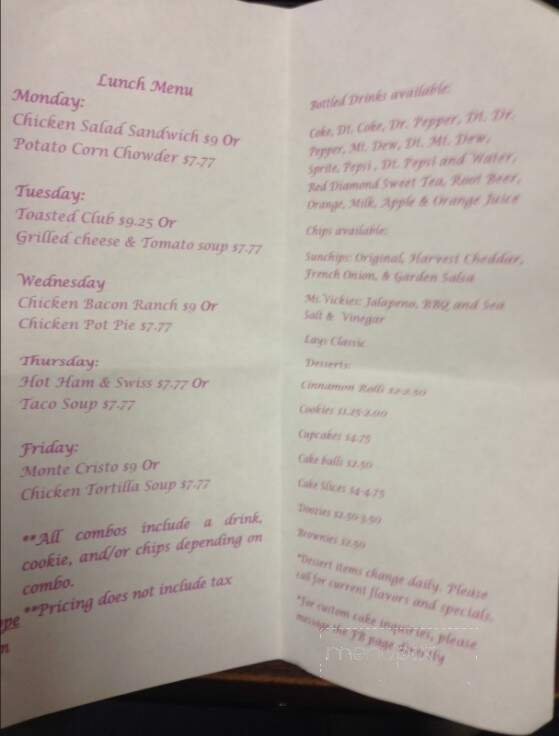 Lunch Menu
Monday:
Chicken Salad Sandwich $9 Or
Potato Corn Chowder $7.77
Tuesday:
Toasted Club $9.25 Or
Grilled cheese & Tomato soup $7.77
Wednesday
Chicken Bacon Ranch $9 Or
Chicken Pot Pie $7.77
Thursday:
Hot Ham & Swiss $7.77 Or
Taco Soup $7.77
Friday:
Monte Cristo $9 Or
Chicken Tortilla Soup $7.77
**All combos include a drink,
cookie, and/or chips depending on
combo.
**Pricing does not include tax
Bottled Drinks available:
Coke, Dt. Coke, Dr. Pepper, Dt. Dr.
Pepper, Mt. Dew, Dt. Mt. Dew,
Sprite, Pepsi, Dt. Pepsi and Water,
Red Diamond Sweet Tea, Root Beer,
Orange, Milk, Apple & Orange Juice
Chips available:
Sunchips: Original, Harvest Cheddar,
French Onion, & Garden Salsa
Ms Vickies: Jalapeno, BBQ and Sea
Salt & Vinegar
Lays Classic
Desserts:
Cinnamon Rolls $2-2.50
Cookies $1.25-2.00
Cupcakes $4.75
Cake balls $2.50
Cake Slices $4-4.75
$2.50-3.50
Brownies $2.50
*Dessert items change daily. Please
call for current flavors and specials.
*For custom cake inquiries, please
message the FB page directly